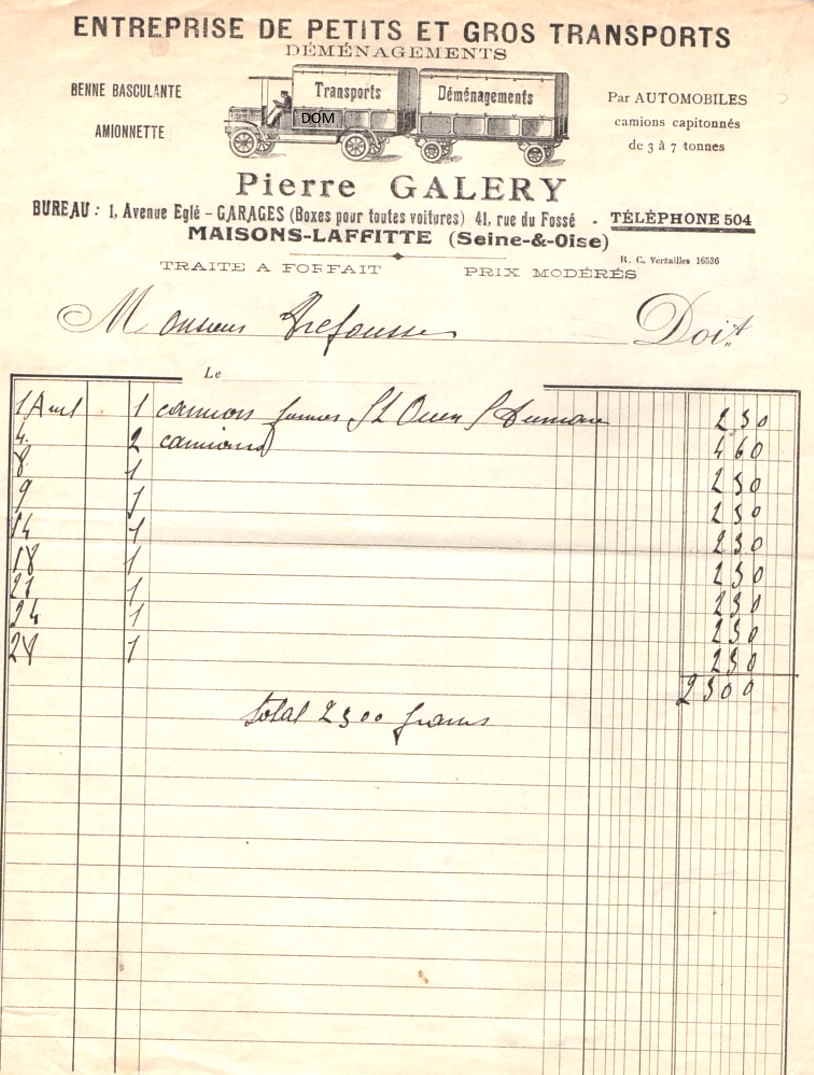 ENTREPRISE DE PETITS ET GROS TRANSPORTS
DÉMÉNAGEMENTS
BENNE BASCULANTE
AMIONNETTE
Transports
Déménagements
DOM
Par AUTOMOBILES
camions capitonnés
de 3 à 7 tonnes
Pierre GALERY
BUREAU : 1, Avenue Eglé - GARAGES (Boxes pour toutes voitures) 41, rue du Fossé - TÉLÉPHONE 504
MAISONS-LAFFITTE (Seine-&-Oise)
R. C. Versailles 16536
TRAITE A FORFAIT PRIX MODÉRÉS
Monsieur Doit
Le
1 Avril 1 camions St Ouen 230
4 2 camions 460
8 1 230
9 1 230
14 1 230
18 1 230
21 1 230
24 1 230
28 1 230
2300
total 2300